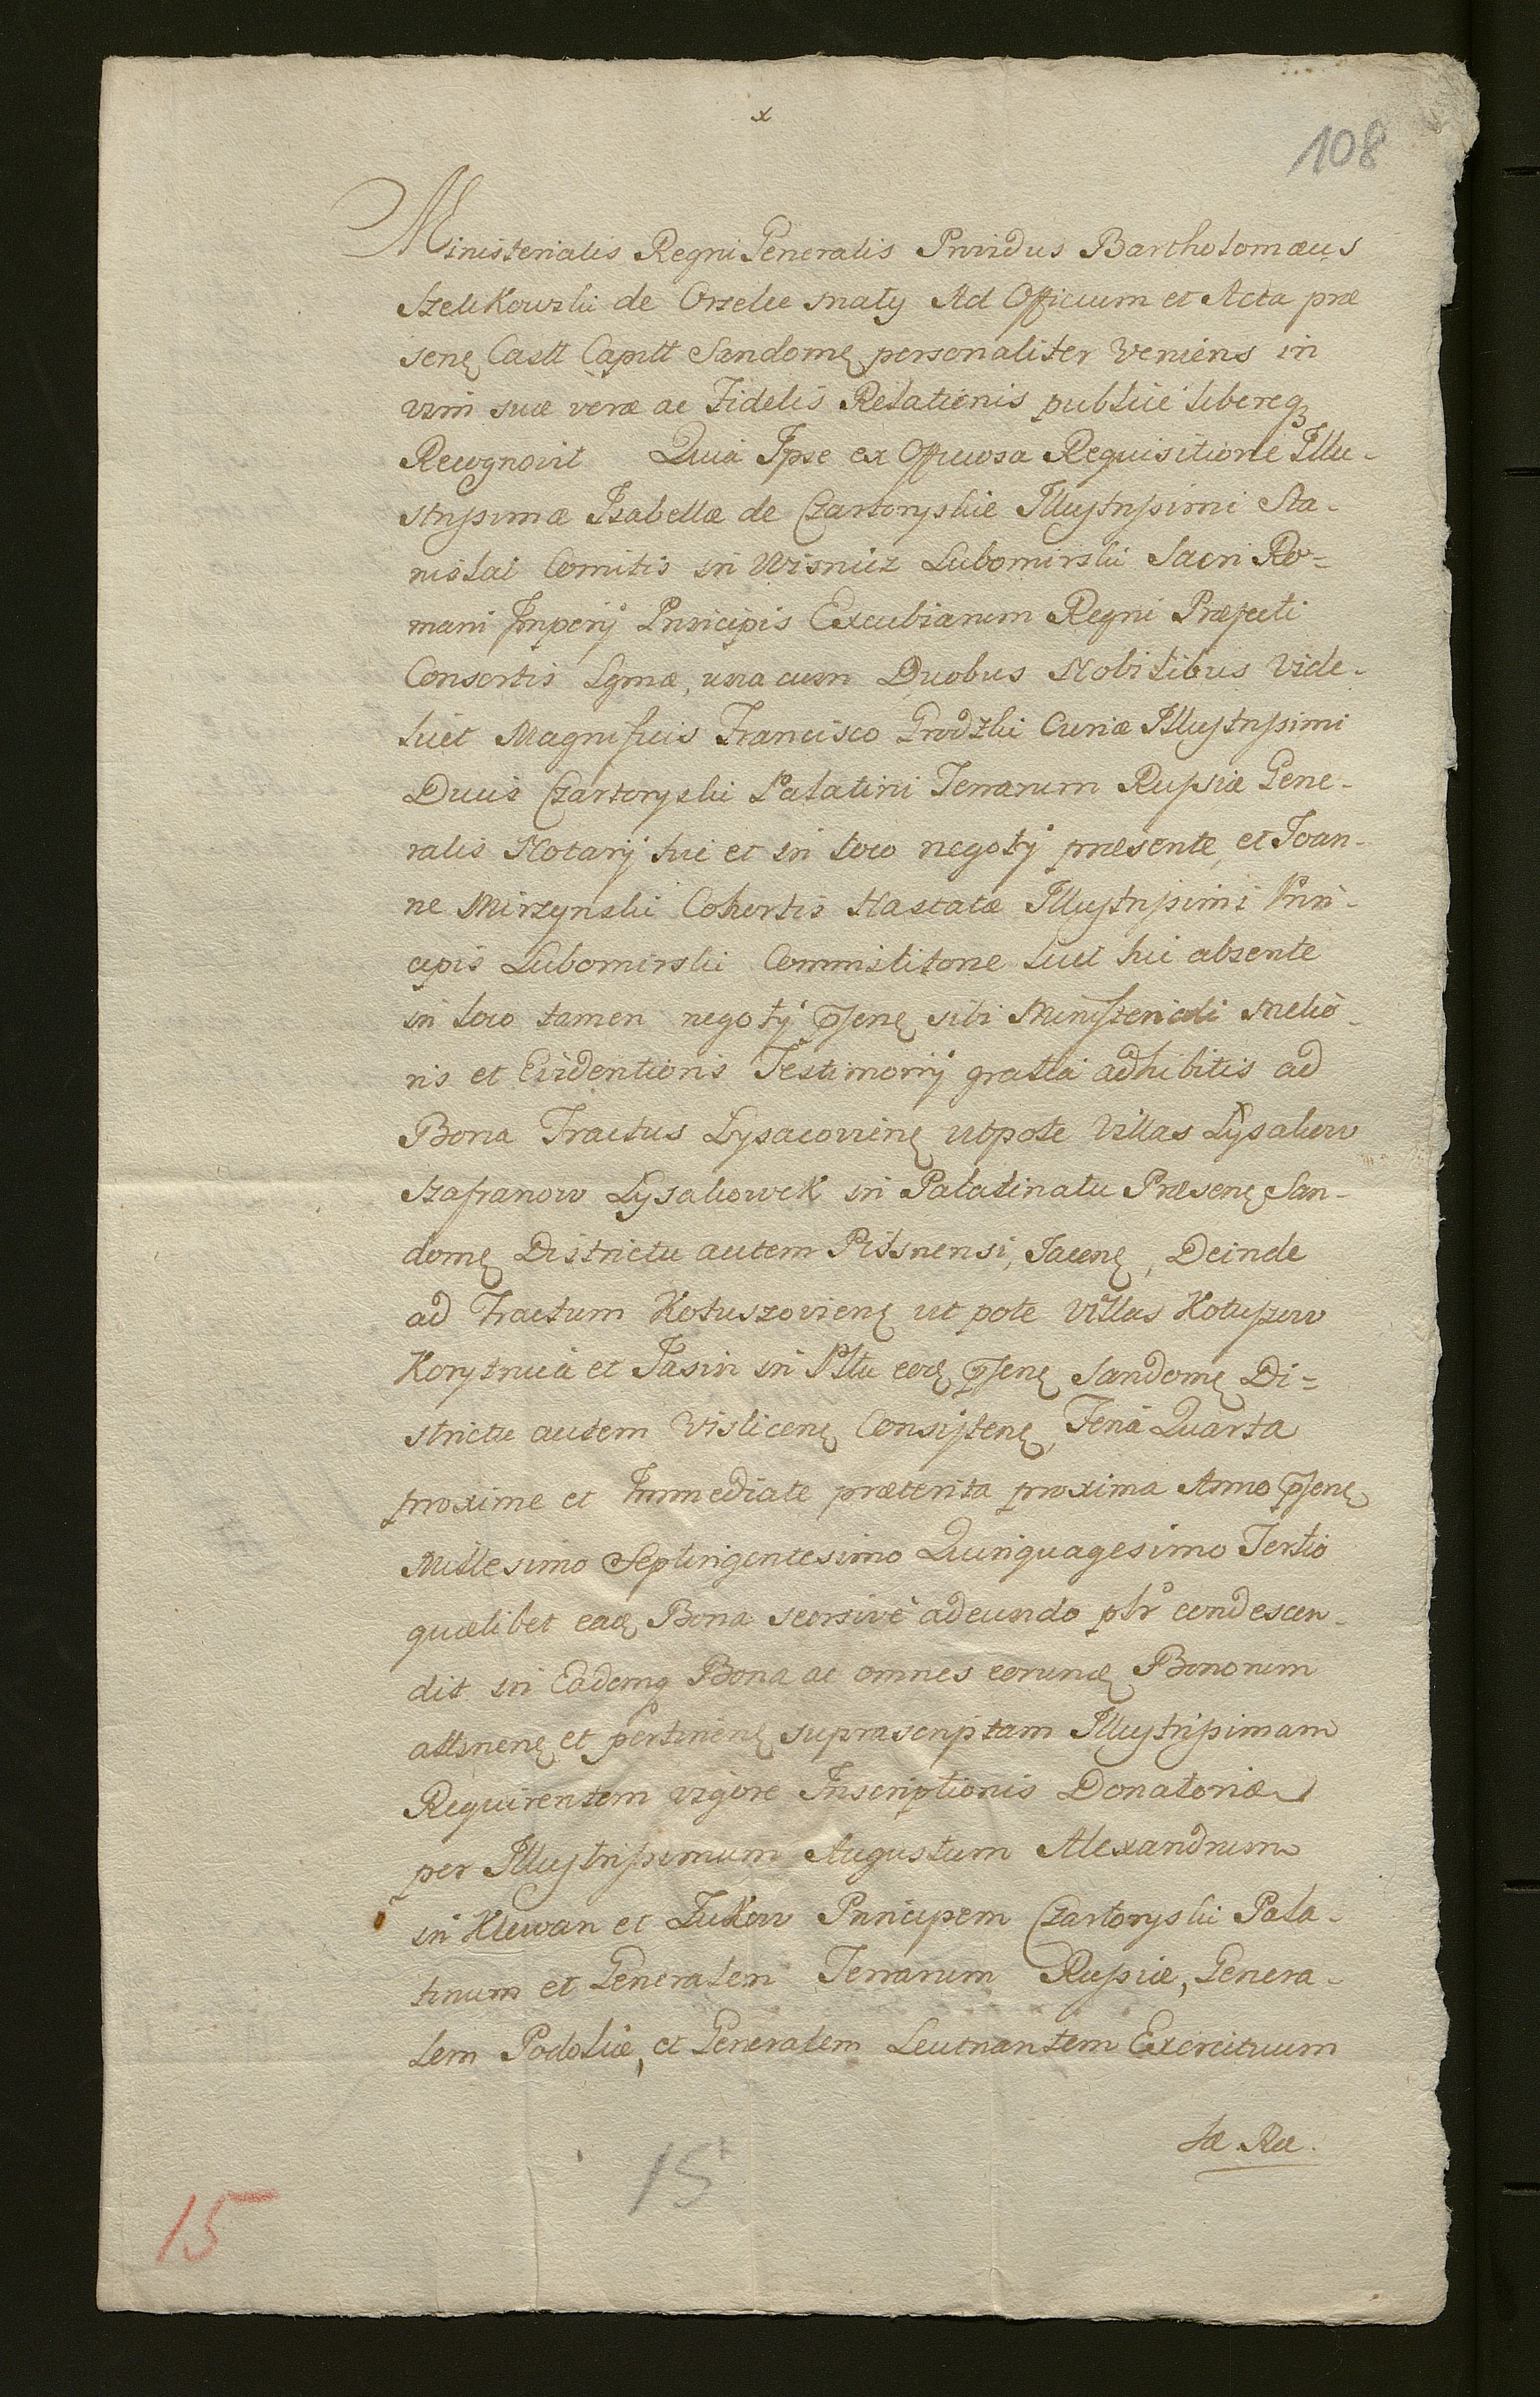 x
108
Ministerialis Regni Generalis Providus Bartholomæus
Szelikowski de Orzele maty Ad Officium et Acta præ
senę Castt Capitt Sandomę personaliter veniens in
vim suæ veræ ac Fidelis Relationis publicé libereqȝ
Recognovit Quia Ipse ex Officiosa Requisitione Illu-
strissimæ Isabellæ de Czartoryskie Illustrissimi Sta-
nislai Comitis in Wisnicz Lubomirski Sacri Ro-
mani Imperij Principis Excubiarum Regni Præfecti
Consortis Lgmæ, una cum Duobus Nobilibus Vide-
licet Magnificis Francisco Grodzki Curiæ Illustrissimi
Ducis Czartoryski Palatini Terrarum Russiæ Gene-
ralis Notarij hic et in loco negotij præsente, et Joan-
ne Mirzynski Cohortis Hastatæ Illustrissimi Prin-
cipis Lubomirski Commilitone licet hic absente
in loco tamen negotij p̄senę sibi Ministeriali melio-
ris et Evidentioris Testimonij gratia adhibitis ad
Bona Tractus Lysacovienę utpote Villas Lysakow
Szafranow Lysakowek in Palatinatu Præsenę San-
domę Districtu autem Pilsnensi, Jacenę, Deinde
ad Tractum Kotuszovienę ut pote villas Kotuszow
Korytnica et Jasin in Pltu eodę p̄senę Sandomę Di=
strictu autem Vislicenę Consistenę, Feria Quarta
proxime et Immediate præterita proxima Anno p̄senę
Millesimo Septingentesimo Quinquagesimo Tertio
quælibet eadę Bona seorsivé adeundo pltr condescen-
dit in Eademq Bona ac omnes eorundę Bonorum
attinenę et pertinenę suprascriptam Illustrissimam
Requirentem vigore Inscriptionis Donatoriæ
per Illustrissimum Augustum Alexandrum
in Klewan et Zukow Principem Czartoryski Pala-
tinum et Generalem Terrarum Russiæ, Genera-
lem Podoliæ, et Generalem Leutnantem Exercituum
15
15